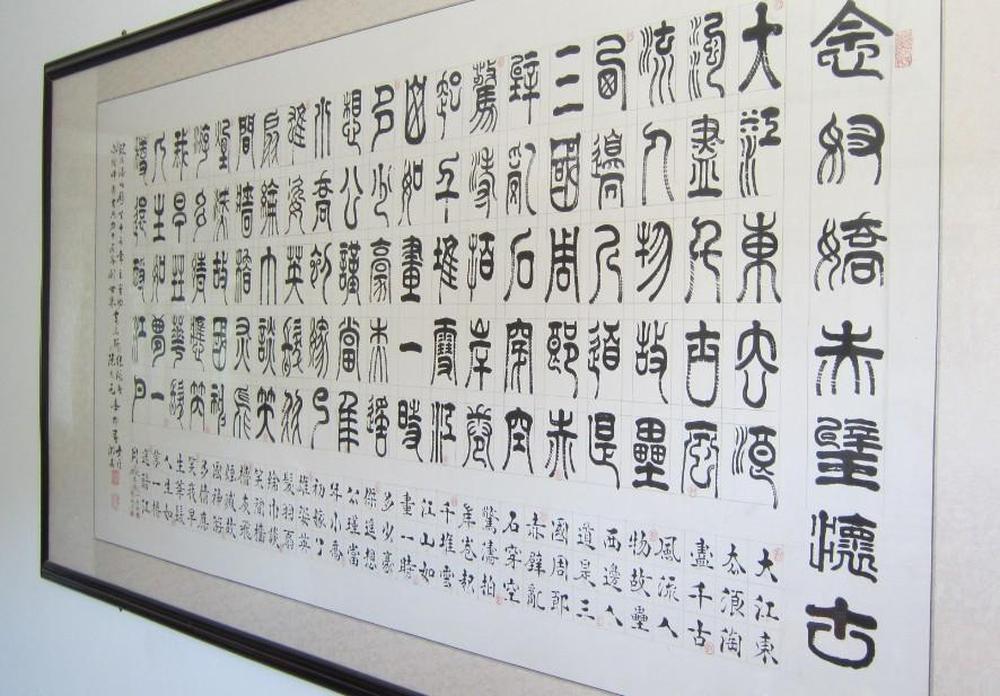 念奴嬌赤壁懷古
大江東去浪
淘盡千古風
流人物故壘
西邊人道是
三國周郎赤
壁亂石穿空
驚濤拍岸卷
起千堆雪江
山如畫一時
多少豪杰遙
想公瑾當年
小喬初嫁了
雄姿英發羽
扇綸巾談笑
間檣櫓灰飛
煙滅故國神
游多情應笑
我早生華髮
人生如夢一
樽還酹江月
大江東
去浪淘
盡千古
風流人
物故壘
西邊人
道是三
國周郎
赤壁亂
石穿空
驚濤拍
岸卷起
千堆雪
江山如
畫一時
多少豪
傑遙想
公瑾當
年小喬
初嫁了
雄姿英
發羽扇
綸巾談
笑間檣
櫓灰飛
煙滅故
國神游
多情應
笑我早
生華髮
人生如
夢一樽
還酹江
月